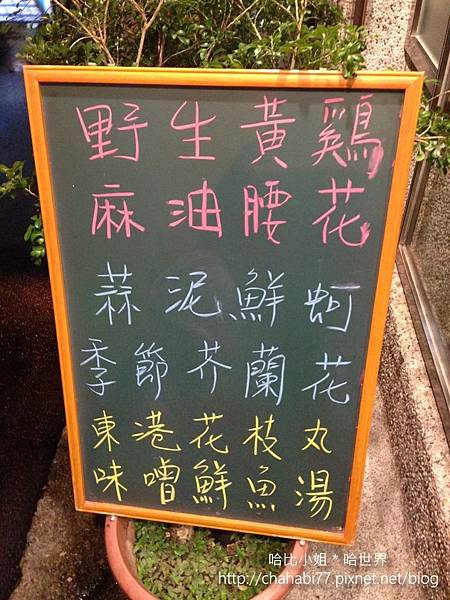 野生黃鷄
麻油腰花
蒜泥鮮蚵
季節芥蘭花
東港花枝丸
味噌鮮魚湯
哈比小姐*哈世界
http://chahabi77.pixnet.net/blog